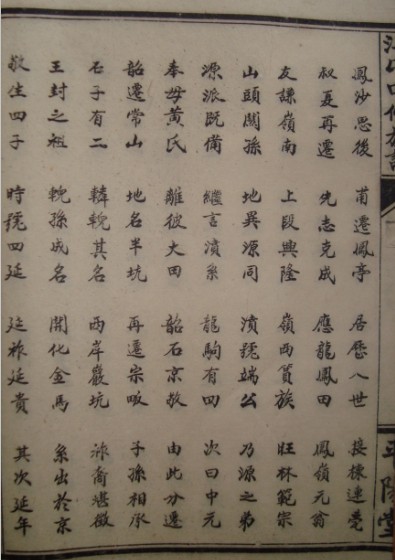 平陽堂
鳳沙思後 甫遷鳳亭 居歷八世 接棟連甍
叔夏再遷 先志克成 應龍鳳田 鳳嶺元翁
友謙嶺南 上段興隆 嶺西貫族 旺林範宗
山頭關孫 地異源同 濆號端公 乃源之弟
源派既備 繼言濆系 龍駒有四 次曰中元
奉母黃氏 離彼大田 韶石京敬 由此分遷
韶遷常山 地名半坑 再遷宗畈 子孫相承
石子有二 轔輗其名 西岸巖坑 裔堪徵
王封之祖 輗孫成名 開化金馬 系出於京
敬生四子 時號四延 延祚延貴 其次延年